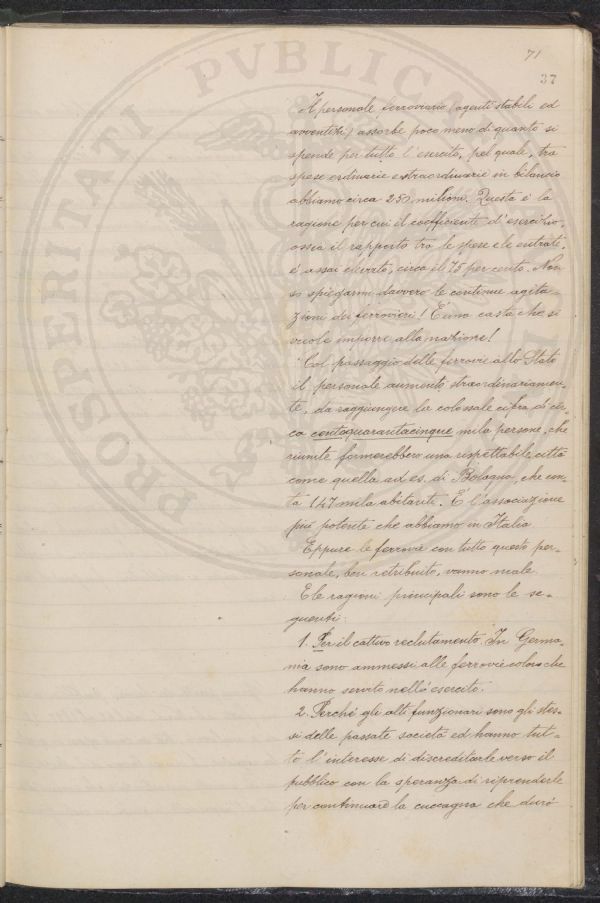 71
37
Il personale ferroviario (agenti stabili ed
avventizi) assorbe poco meno di quanto si
spende per tutto l'esercito, pel quale, tra
spese ordinarie e straordinarie in bilancio
abbiamo circa 250 milioni. Questa è la
ragione per cui il coefficiente d'esercizio,
ossia il rapporto tra le spese e le entrate,
è assai elevato, circa il 75 per cento. Non
so spiegarmi davvero le continue agita-
zioni dei ferrovieri! È una casta che si
vuole imporre alla nazione!
Col passaggio delle ferrovie allo Stato
il personale aumentò straordinariamen-
te, da raggiungere la colossale cifra di cir-
ca centoquarantacinque mila persone, che
riunite formerebbero una rispettabile città
come quella ad es. di Bologna, che con-
ta 147 mila abitanti. È l'associazione
più potente che abbiamo in Italia
Eppure le ferrovie con tutto questo per-
sonale, ben retribuito, vanno male.
E le ragioni principali sono le se-
guenti:
1. Per il cattivo reclutamento. In Germa-
nia sono ammessi alle ferrovie coloro che
hanno servito nell'esercito.
2. Perché gli alti funzionari sono gli stes-
si delle passate società ed hanno tut-
to l'interesse di discreditarle verso il
pubblico con la speranza di riprenderle
per continuare la cuccagna che durò
PROSPERITATI PVBLICAE